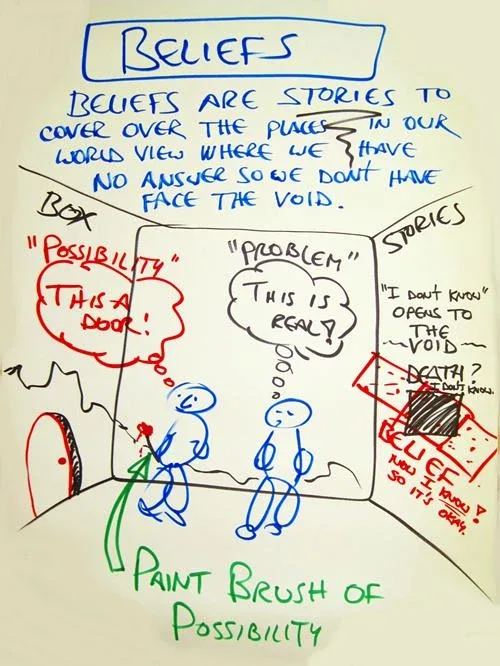 BELIEFS
BELIEFS ARE STORIES TO
COVER OVER THE PLACES IN OUR
WORLD VIEW WHERE WE HAVE
NO ANSWER SO WE DON'T HAVE
FACE THE VOID.
BOX
STORIES
"POSSIBILITY"
THIS A
DOOR!
"PROBLEM"
THIS IS
REAL!
"I DONT KNOW"
OPENS TO
THE
VOID
DEATH?
I DON'T KNOW.
BELIEF
NOW I KNOW!
SO IT'S
OKAY.
PAINT BRUSH OF
POSSIBILITY